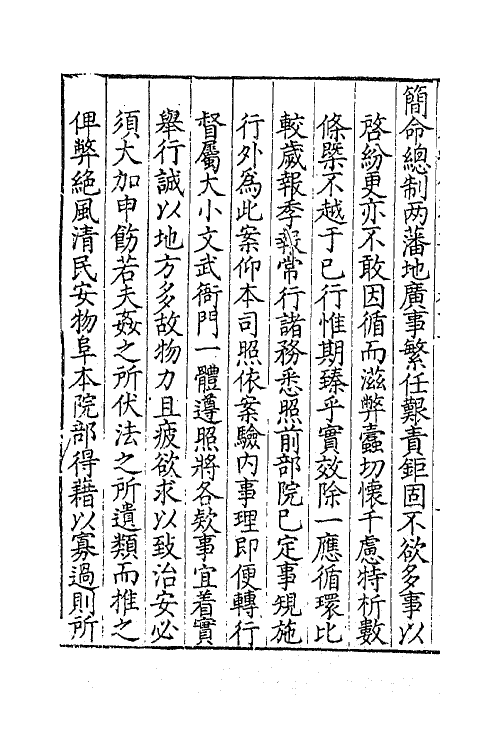 簡命總制两藩地廣事繁任艱責鉅固不欲多事以
啓紛更亦不敢因循而滋弊蠧切懷千慮特析數
條槩不越于已行惟期臻乎實效除一應循環比
較歲報季報常行諸務悉照前部院已定事規施
行外爲此案仰本司照依案驗内事理即便轉行
督屬大小文武衙門一體遵照將各欵事宜着實
舉行誠以地方多故物力且疲欲求以致治安必
須大加申飭若夫姦之所伏法之所遺類而推之
俾弊絶風清民安物阜本院部得藉以寡過則所